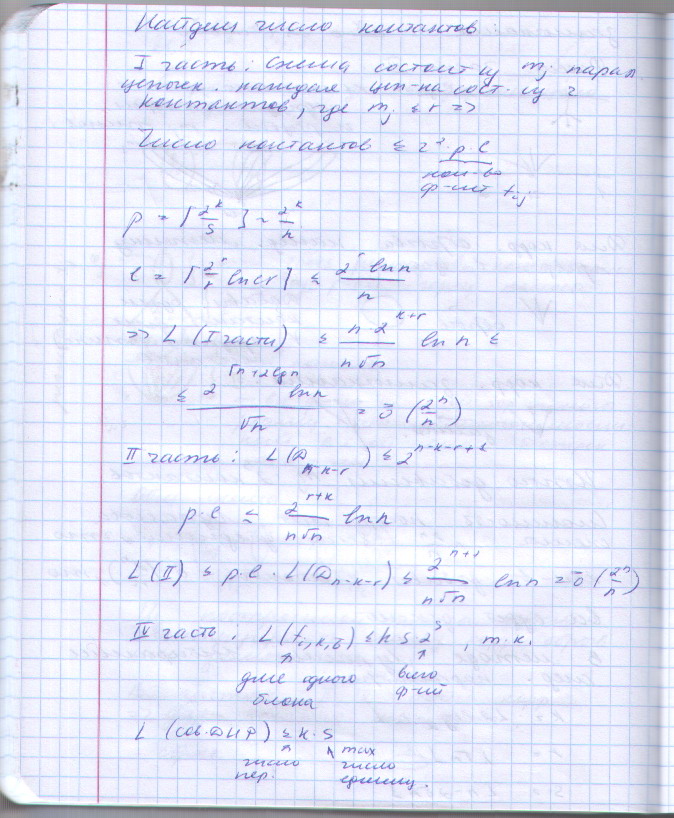 Найдем число контактов:
I часть: схема состоит из m_j парал.
цепочек. каждая цеп-ка сост. из r
контактов, где m_j ≤ r =>
Число контактов ≤ r² · p · l
кол-во
ф-ий f_ij
p = ⌈2^k/s⌉ ~ 2^k/n
l = ⌈2^r/r ln cr⌉ ≤ 2^r ln n / n
=> L (I части) ≤ n · 2^(k+r) / (n√n) ln n ≤
≤ 2^(√n + 2 log n) ln n / √n = ō (2^n/n)
II часть: L(D_(n-k-r)) ≤ 2^(n-k-r+1)
p · l ≤ 2^(r+k) / (n√n) ln n
L (II) ≤ p · l · L(D_(n-k-r)) ≤ 2^(n+1) / (n√n) ln n = ō (2^n/n)
IV часть. L(f_(i,k,σ)) ≤ k s 2^s, т.к.
для одного всего
блока ф-ий
L (сов. ДНФ) ≤ k · s
число max
пер. число
единиц.